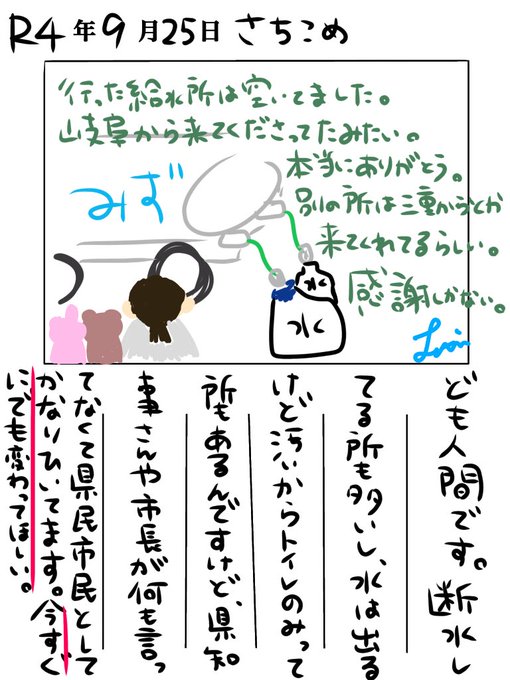 R4年9月25日 さちこめ
行った給水所は空いてました。
岐阜から来てくださってたみたい。
本当にありがとう。
別の所は三重からとか
来てくれてるらしい。
感謝しかない。
みず
水
水
ども人間です。断水し
てる所も多いし、水は出る
けど汚いからトイレのみって
所もあるんですけど、県知
事さんや市長が何も言っ
てなくて県民市民として
かなりひいてます。今すぐ
にでも変わってほしい。